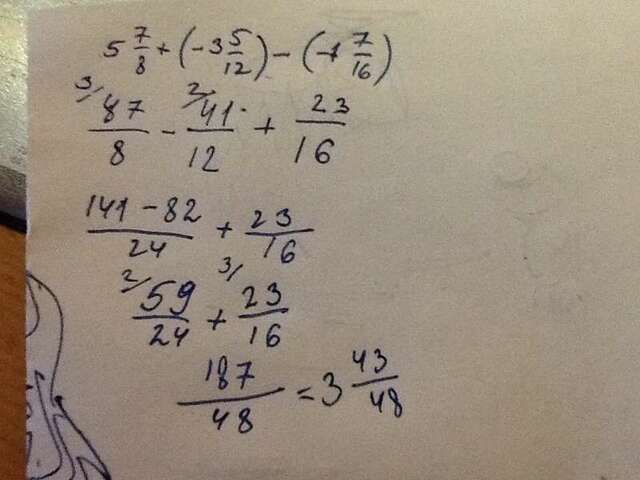 5 7/8 + (-3 5/12) - (-1 7/16)
3/ 87/8 - 2/ 41/12 + 23/16
141-82/24 + 23/16
2/ 59/24 + 3/ 23/16
187/48 = 3 43/48